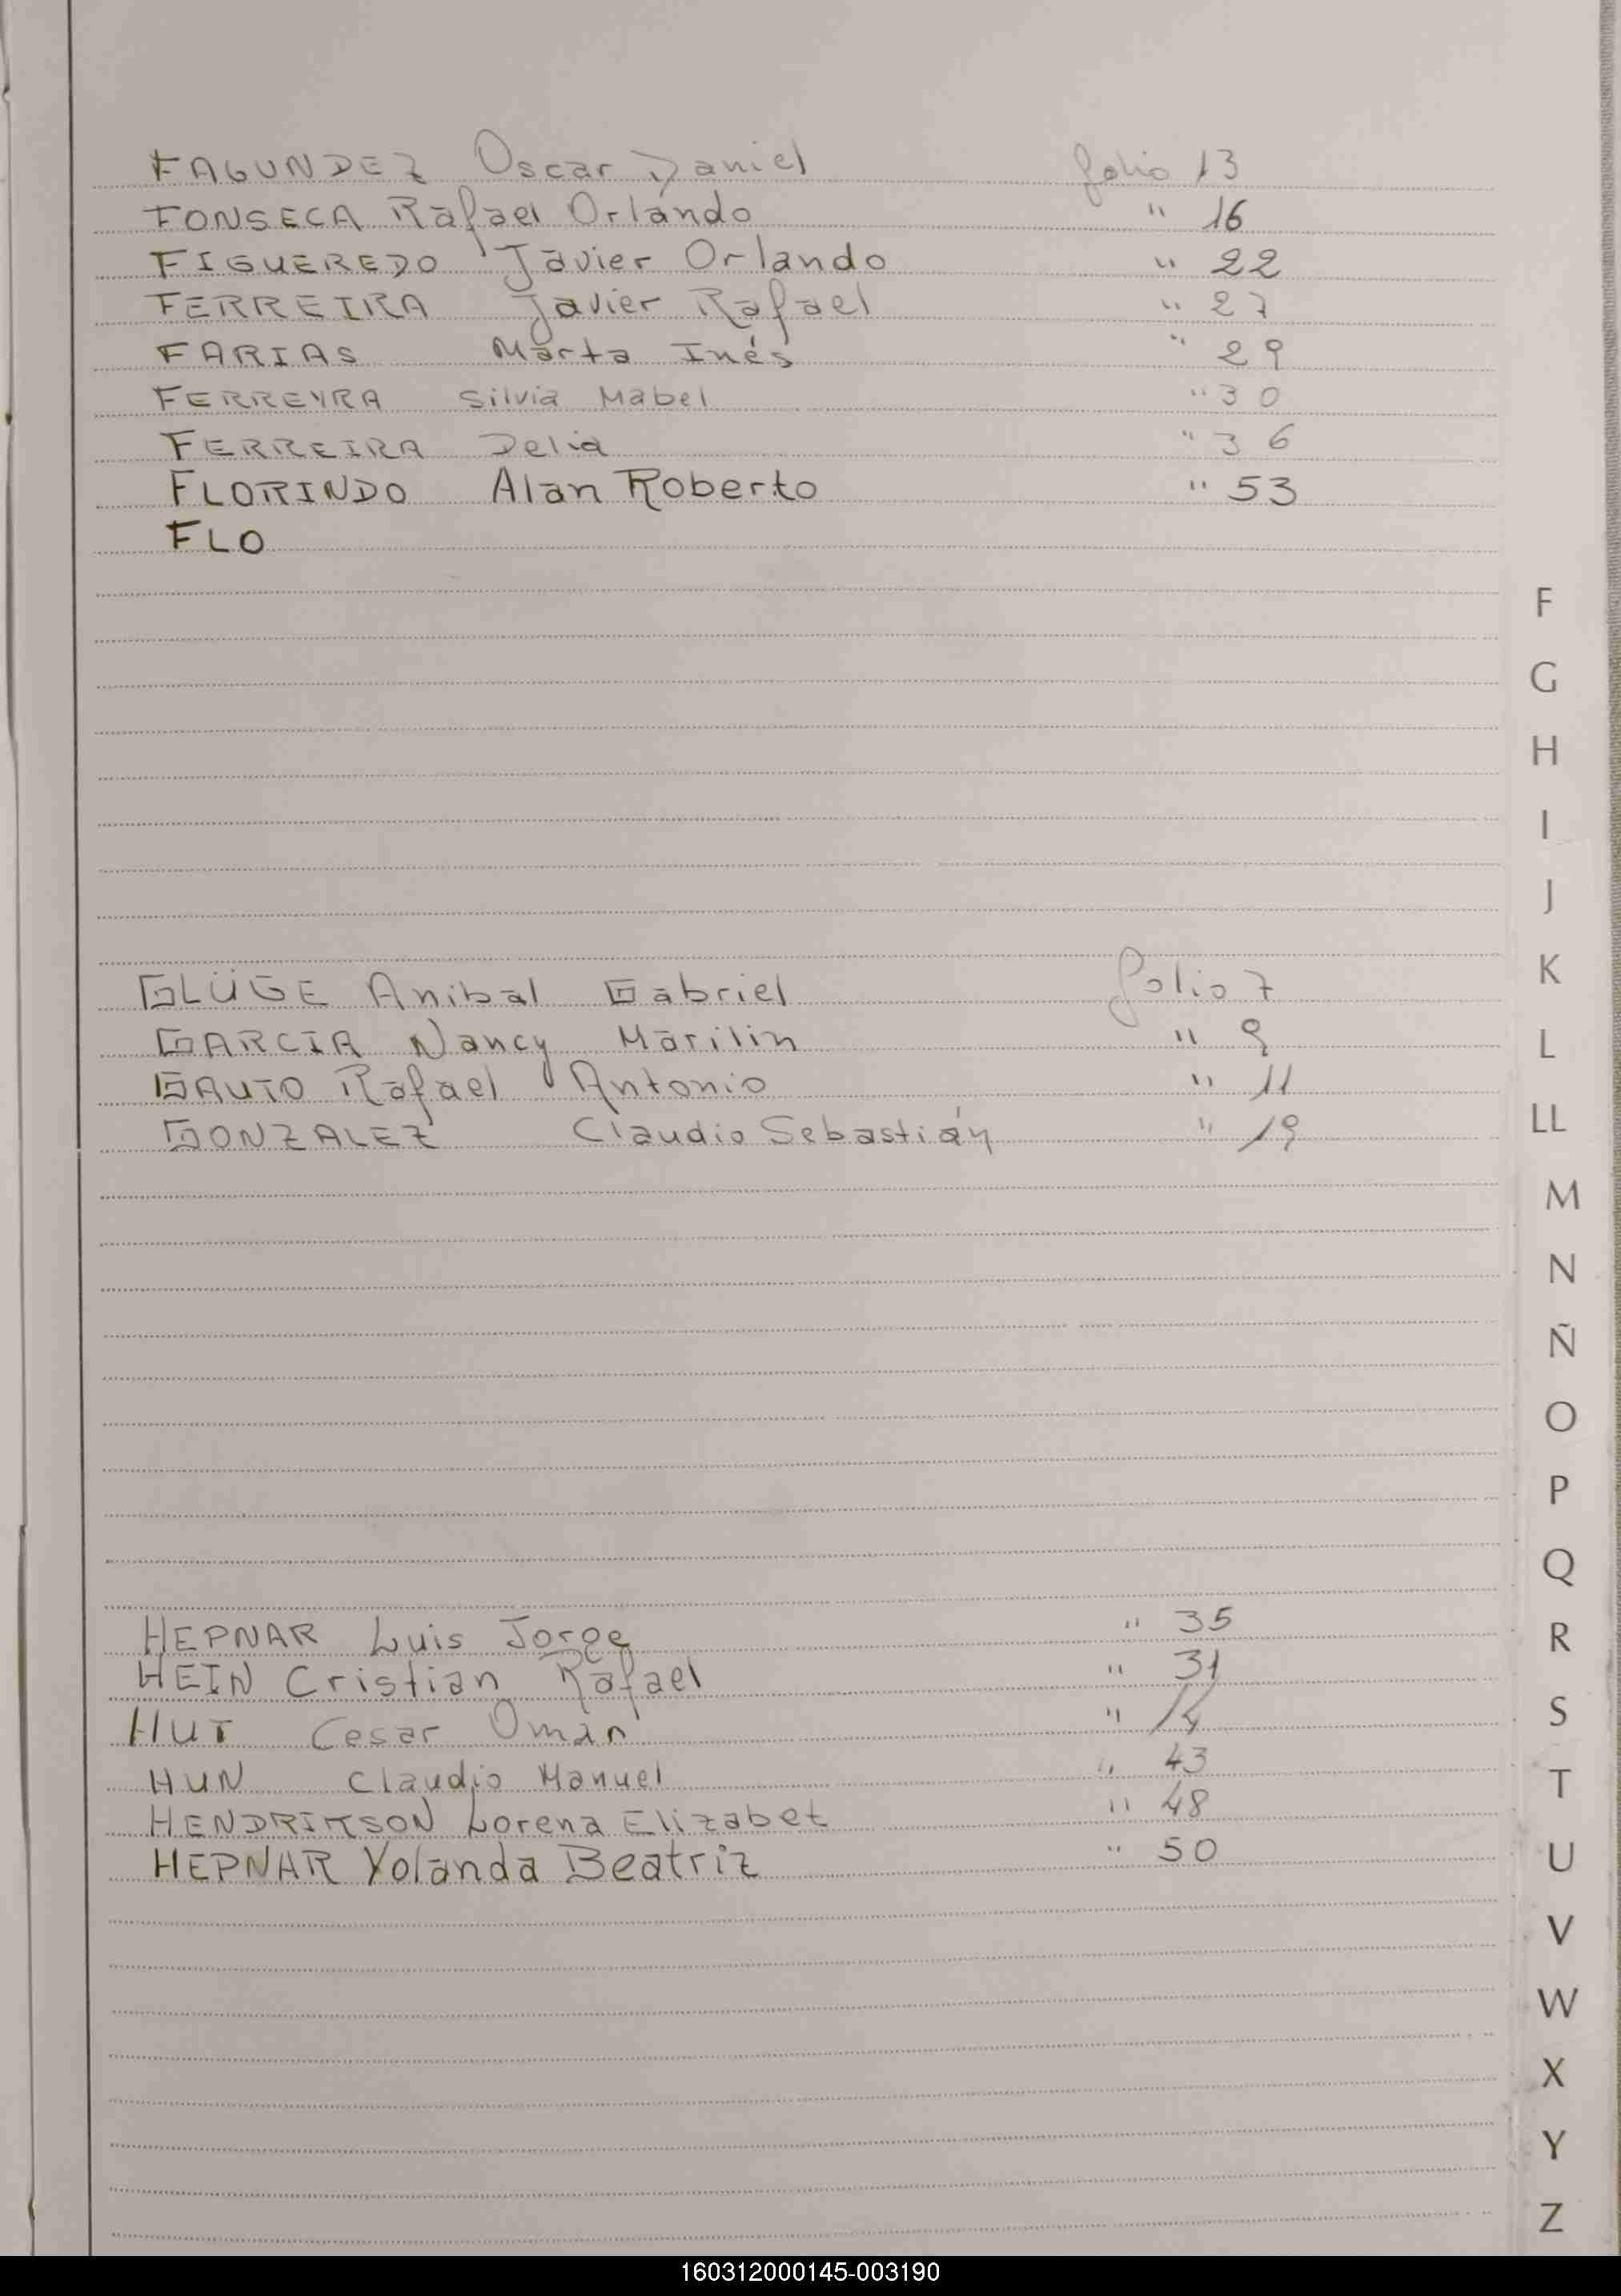 FAGUNDEZ Oscar Daniel folio 13
FONSECA Rafael Orlando " 16
FIGUEREDO Javier Orlando " 22
FERREIRA Javier Rafael " 27
FARIAS Marta Inés " 29
FERREYRA Silvia Mabel " 30
FERREIRA Delia " 36
FLORINDO Alan Roberto " 53
FLO
F
G
H
I
J
K
GLÜGE Anibal Gabriel folio 7
GARCIA Nancy Marilin " 9
L
GAUTO Rafael Antonio " 11
GONZALEZ Claudio Sebastián " 19
LL
M
N
Ñ
O
P
Q
HEPNAR Luis Jorge " 35
R
HEIN Cristian Rafael " 31
HUT Cesar Omar " 14
S
HUN Claudio Manuel " 43
T
HENDRIKSON Lorena Elizabet " 48
HEPNAR Yolanda Beatriz " 50
U
V
W
X
Y
Z
160312000145-003190